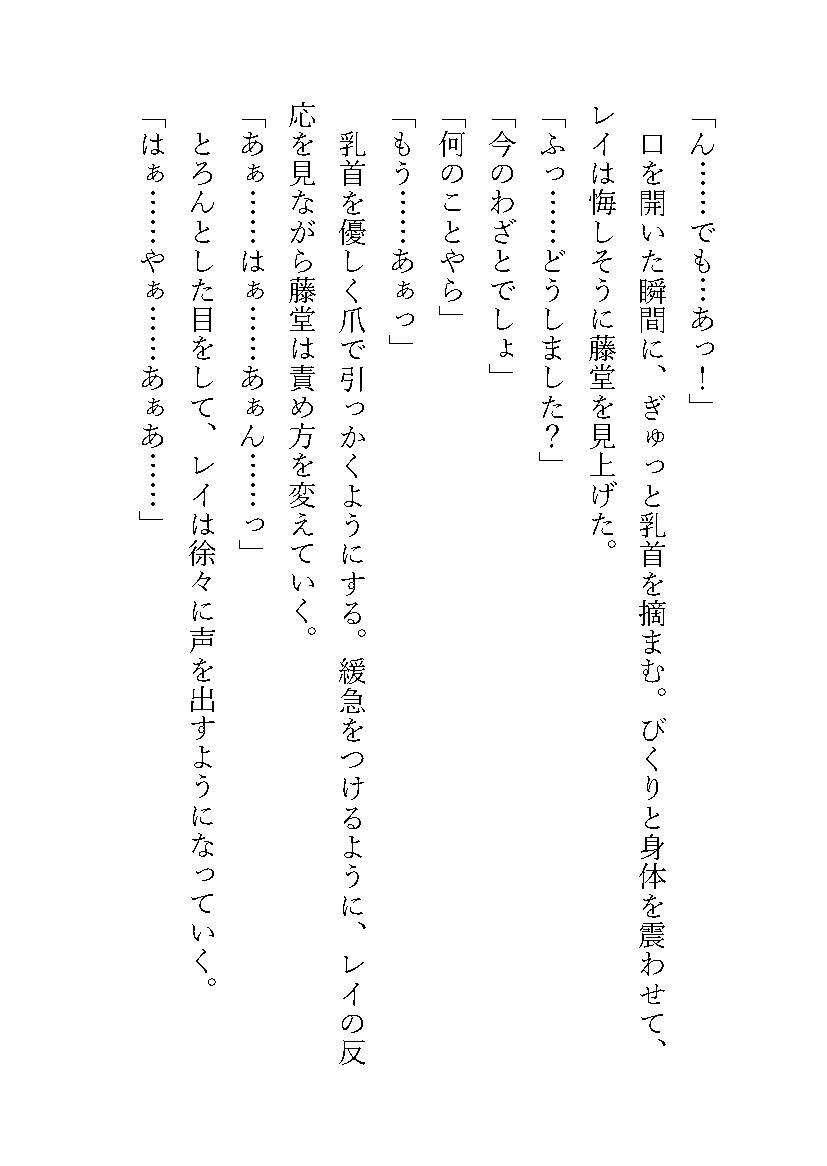 「ん……でも…あっ！」
　口を開いた瞬間に、ぎゅっと乳首を摘まむ。びくりと身体を震わせて、
レイは悔しそうに藤堂を見上げた。
「ふっ……どうしました？」
「今のわざとでしょ」
「何のことやら」
「もう……あぁっ」
　乳首を優しく爪で引っかくようにする。緩急をつけるように、レイの反
応を見ながら藤堂は責め方を変えていく。
「あぁ……はぁ……あぁん……っ」
　とろんとした目をして、レイは徐々に声を出すようになっていく。
「はぁ……やぁ……あぁあ……」